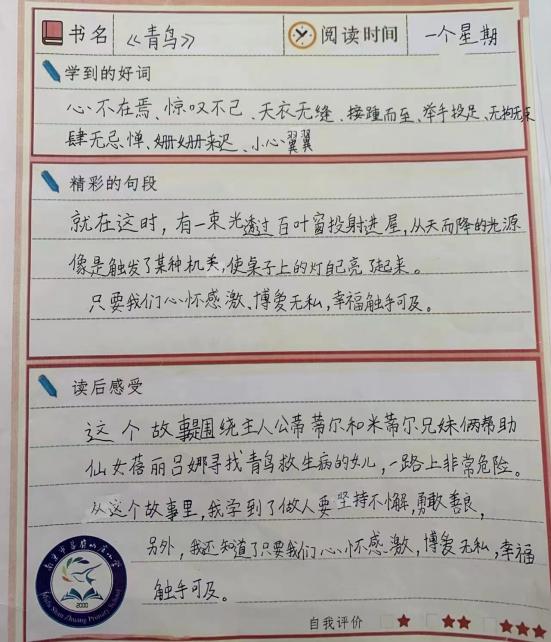 书名 《青鸟》 阅读时间 一个星期
学到的好词
心不在焉、惊叹不已、天衣无缝、接踵而至、举手投足、无拘无束
肆无忌惮、姗姗来迟、小心翼翼
精彩的句段
就在这时，有一束光透过百叶窗投射进屋，从天而降的光源
像是触发了某种机关，使桌子上的灯自己亮了起来。
只要我们心怀感激、博爱无私，幸福触手可及。
读后感受
这个故事是围绕主人公蒂蒂尔和米蒂尔兄妹俩帮助
仙女蓓丽吕娜寻找青鸟救生病的女儿，一路上非常危险。
从这个故事里，我学到了做人要坚持不懈，勇敢善良，
另外，我还知道了只要我们心怀感激，博爱无私，幸福
触手可及。
Shan Zhuang Primary School
2000
自我评价